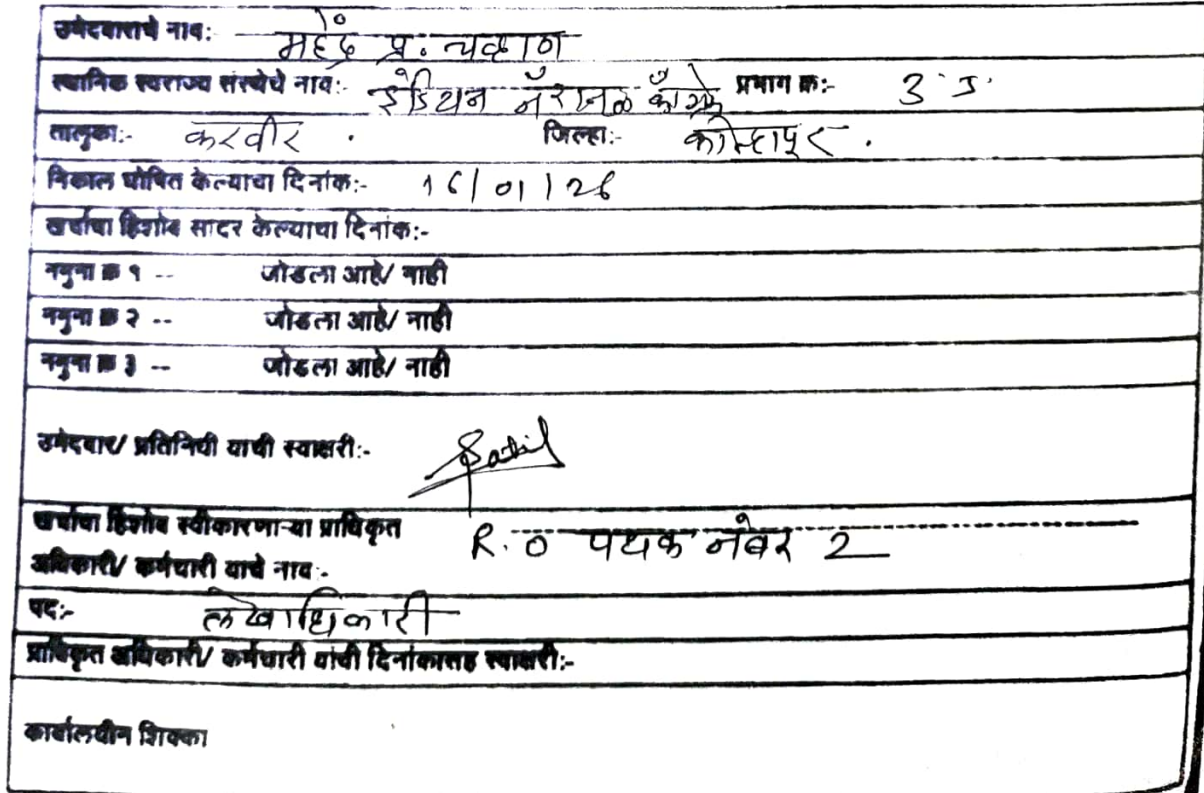 उमेदवाराचे नाव:- महेंद्र प्र. चव्हाण
स्थानिक स्वराज्य संस्थेचे नाव:- इंडियन नॅशनल काँग्रेस प्रभाग क्र:- 3
तालुका:- करवीर . जिल्हा:- कोल्हापूर .
निकाल घोषित केल्याचा दिनांक:- 16/01/26
खर्चाचा हिशोब सादर केल्याचा दिनांक:-
नमुना क्र १ -- जोडला आहे/ नाही
नमुना क्र २ -- जोडला आहे/ नाही
नमुना क्र ३ -- जोडला आहे/ नाही
उमेदवार/ प्रतिनिधी यांची स्वाक्षरी:- Patil
खर्चाचा हिशोब स्वीकारणाऱ्या प्राधिकृत
R.O पथक नंबर 2
अधिकारी/ कर्मचारी याचे नाव:-
पद:- लेखाधिकारी
प्राधिकृत अधिकारी/ कर्मचारी यांची दिनांकासह स्वाक्षरी:-
कार्यालयीन शिक्का